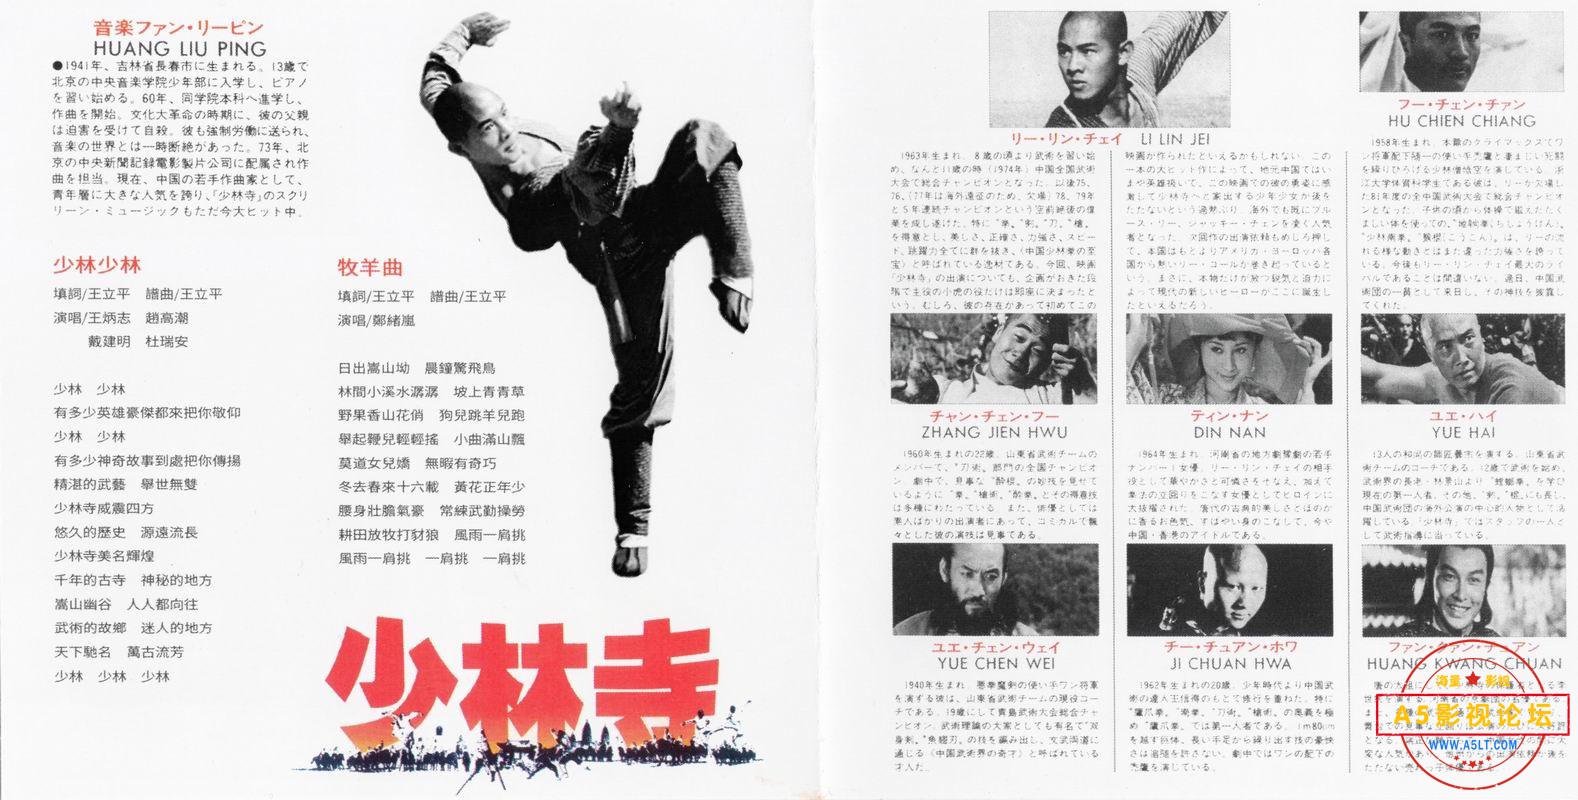 音楽ファン・リーピン
HUANG LIU PING
●1941年、吉林省長春市に生まれる。13歳で
北京の中央音楽学院少年部に入学し、ピアノ
を習い始める。60年、同学院本科へ進学し、
作曲を開始。文化大革命の時期に、彼の父親
は迫害を受けて自殺。彼も強制労働に送られ、
音楽の世界とは一時断絶があった。73年、北
京の中央新聞記録電影製片公司に配属され作
曲を担当。現在、中国の若手作曲家として、
青年層に大きな人気を誇り、「少林寺」のスクリ
リーン・ミュージックもただ今大ヒット中。
少林少林
填詞/王立平 譜曲/王立平
演唱/王炳志 趙高潮
戴建明 杜瑞安
少林 少林
有多少英雄豪傑都來把你敬仰
少林 少林
有多少神奇故事到處把你傳揚
精湛的武藝 舉世無雙
少林寺威震四方
悠久的歷史 源遠流長
少林寺美名輝煌
千年的古寺 神秘的地方
嵩山幽谷 人人都向往
武術的故鄉 迷人的地方
天下馳名 萬古流芳
少林 少林 少林
牧羊曲
填詞/王立平 譜曲/王立平
演唱/鄭緒嵐
日出嵩山坳 晨鐘驚飛鳥
林間小溪水潺潺 坡上青青草
野果香山花俏 狗兒跳羊兒跑
舉起鞭兒輕輕搖 小曲滿山飄
莫道女兒嬌 無暇有奇巧
冬去春來十六載 黃花正年少
腰身壯膽氣豪 常練武勤操勞
耕田放牧打豺狼 風雨一肩挑
風雨一肩挑 一肩挑 一肩挑
少林寺
リー・リン・チェイ LI LIN JEI
1963年生まれ。8歳の頃より武術を習い始
め、なんと11歳の時(1974年)中国全国武術
大会で総合チャンピオンとなった。以後75、
76、(77年は海外遠征のため、欠場)78、79年
と5年連続チャンピオンという空前絶後の偉
業を成し遂げた。特に"拳。"剣。"刀。"槍。
を得意とし、美しさ、正確さ、力強さ、スピー
ド、跳躍力全てに群を抜き、〈中国少林拳の至
宝〉と呼ばれている逸材である。今回、映画
「少林寺」の出演についても、企画がおきた段
階で主役の小虎の役だけは即座に決まったと
いう。むしろ、彼の存在があって初めてこの
映画が作られたといえるかもしれない。この
一本の大ヒット作によって、地元中国ではい
まや英雄扱いで、この映画での彼の勇姿に感
激して少林寺へと家出する少年少女が後を
たたないという過熱ぶり。海外でも既にブル
ース・リー、ジャッキー・チェンを凌ぐ人気
者となった。次回作の出演依頼もめじろ押し
で、本国はもとよりアメリカ・ヨーロッパ各
国から熱いリー・コールが巻き起っていると
いう。まさに、本物だけが放つ鋭気と迫力に
よって現代の新しいヒーローがここに誕生し
たといえるだろう。
フー・チェン・チャン
HU CHIEN CHIANG
1958年生まれ。本篇のクライマックスでワ
ン将軍配下随一の使い手禿鷹と凄まじい死闘
を繰りひろげる少林僧悟空を演じている。浙
江大学体育科学生である彼は、リーが欠場し
た81年度の全中国武術大会で総合チャンピオ
ンとなった。子供の頃から体操で鍛えたたく
ましい体を使っての、"地躺拳(ちしょうけん)。
"少林南拳。"猴棍(こうこん)。は、リーの流
れる様な動きとはまた違った力強さを誇って
いる。今後もリー・リン・チェイ最大のライ
バルであることは間違いない。過日、中国武
術団の一員として来日し、その神技を披露し
てくれた。
チャン・チェン・フー
ZHANG JIEN HWU
1960年生まれの22歳。山東省武術チームの
メンバーで、"刀術。部門の全国チャンピオ
ン。劇中で、見事な"酔棍。の妙技を見せて
いるように"拳。"槍術。"酔拳。とその得意技
は多種にわたっている。また、俳優としては
素人ばかりの出演者にあって、コミカルで飄
々とした彼の演技は見事である。
ティン・ナン
DIN NAN
1964年生まれ。河南省の地方劇豫劇の若手
ナンバー1女優。リー・リン・チェイの相手
役として華やかさと可憐さをそなえ、加えて
拳法の立回りをこなす女優としてヒロインに
大抜擢された。唐代の古典的美しさとほのか
に香るお色気、すばやい身のこなしで、今や
中国・香港のアイドルである。
ユエ・ハイ
YUE HAI
13人の和尚の師匠曇宗を演する。山東省武
術チームのコーチである。12歳で武術を始め、
武術界の長老・林景山より"螳螂拳。を学び
現在の第一人者。その他、"剣。"棍。にも長し、
中国武術団の海外公演の中心的人物として活
躍している。「少林寺」ではスタッフの一人と
して武術指導に当っている。
ユエ・チェン・ウェイ
YUE CHEN WEI
1940年生まれ。悪拳魔剣の使い手ワン将軍
を演する彼は、山東省武術チームの現役コー
チである。19歳にして青島武術大会総合チャ
ンピオン。武術理論の大家としても有名で"双
身剣。"魚鰓刀。の技を編み出し、文武両道に
通じる〈中国武術界の奇才〉と呼ばれている
才人た。
チー・チュアン・ホワ
JI CHUAN HWA
1962年生まれの20歳。少年時代より中国武
術の達人王信得のもとで修行を重ねた。特に
"鷹爪拳。"南拳。"刀術。"槍術。の奥義を極
め"鷹爪拳。では第一人者である。1m80cm
を越す巨体、長い手足から繰り出す技の豪快
さは追随を許さない。劇中ではワンの配下の
禿鷹を演じている。
ファン・クァン・チュアン
HUANG KWANG CHUAN
海量★影视
A5影视论坛
WWW.A5LT.COM